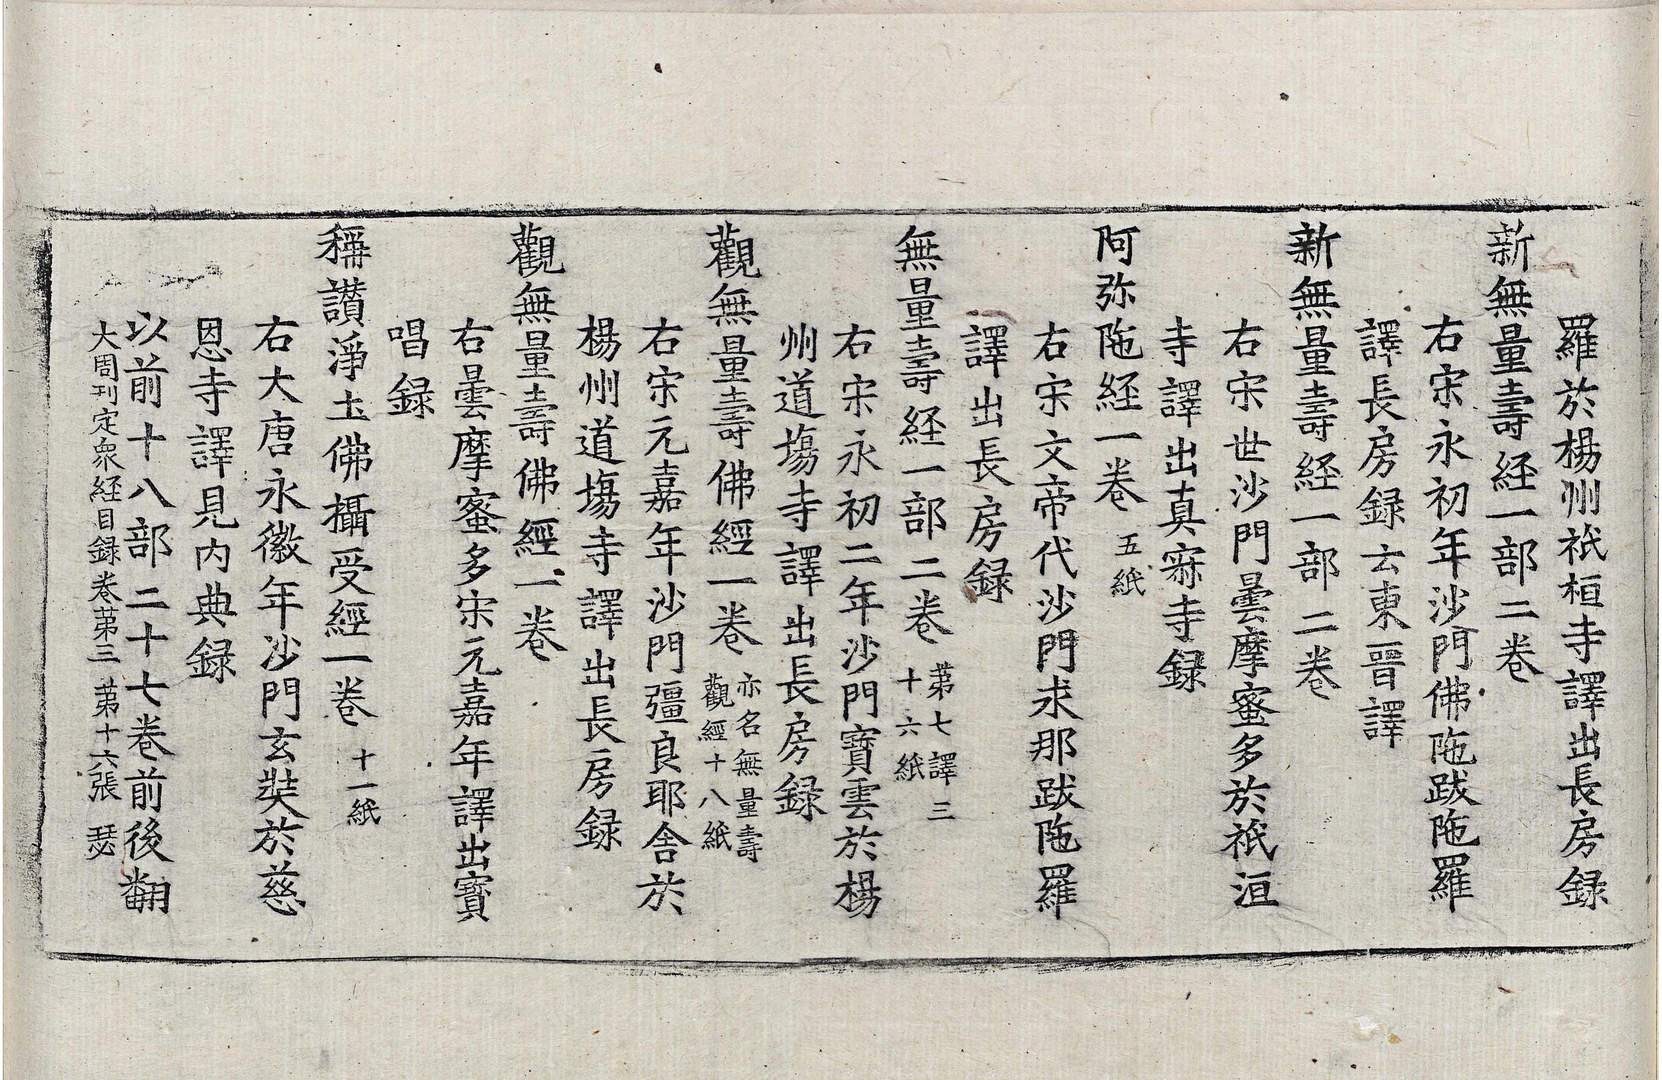 羅於楊州祇桓寺譯出長房録
新無量壽経一部二卷
右宋永初年沙門佛陁跋陁羅
譯長房録云東晉譯
新無量壽経一部二卷
右宋世沙門曇摩蜜多於祇洹
寺譯出真寂寺録
阿弥陁経一卷 五紙
右宋文帝代沙門求那跋陁羅
譯出長房録
無量壽経一部二卷 苐七譯三
十六紙
右宋永初二年沙門寶雲於楊
州道塲寺譯出長房録
觀無量壽佛經一卷 亦名無量壽
觀經十八紙
右宋元嘉年沙門彊良耶舍於
楊州道塲寺譯出長房録
觀無量壽佛經一卷
右曇摩蜜多宋元嘉年譯出寶
唱録
稱讃淨土佛攝受經一卷 十一紙
右大唐永徽年沙門玄奘於慈
恩寺譯見内典録
以前十八部二十七卷前後翻
大周刊定衆経目録卷苐三 苐十六張 瑟